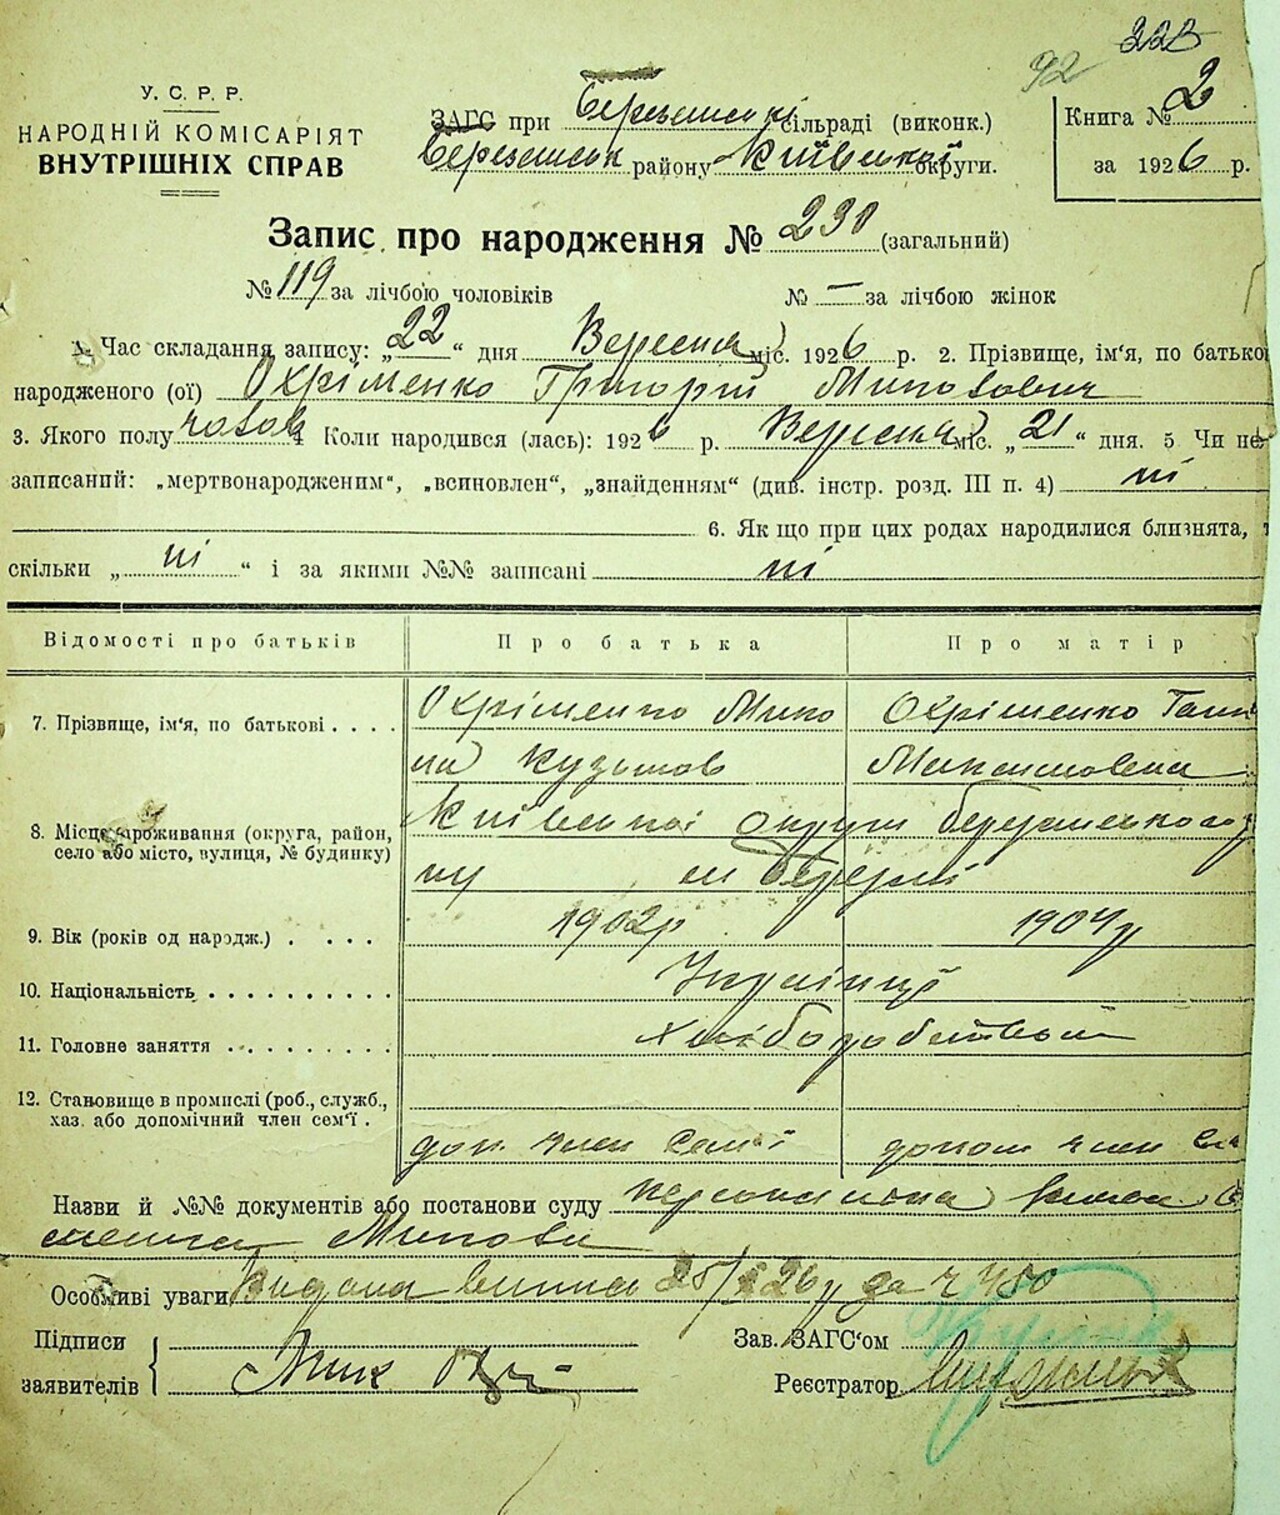 223
92
У. С. Р. Р.
НАРОДНІЙ КОМІСАРІЯТ
ВНУТРІШНІХ СПРАВ
ЗАГС при Березанські сільраді (виконк.)
Березанськ району Київської округи.
Книга № 2
за 1926 р.
Запис про народження № 230 (загальний)
№ 119 за лічбою чоловіків № — за лічбою жінок
1. Час складання запису: „22“ дня Вересня міс. 1926 р. 2. Прізвище, ім'я, по батько
народженого (ої) Охріменко Григорій Миколович
3. Якого полу чолов 4 Коли народився (лась): 1926 р. Вересня міс. „21“ дня. 5 Чи не
записаний: „мертвонародженим“, „всиновлен“, „знайденням“ (див. інстр. розд. III п. 4) ні
6. Як що при цих родах народилися близнята, т
скільки „ні“ і за якими №№ записані ні
Відомості про батьків Про батька Про матір
7. Прізвище, ім'я, по батькові . . . . Охріменко Мико Охріменко Ганн
ла Кузьмов Максимовна
8. Місце проживання (округа, район, Київської округи Березанського
село або місто, вулиця, № будинку) м Березані
9. Вік (років од народж.) . . . . 1902р 1904р
10. Національність . . . . . . . . . . Українці
11. Головне заняття . . . . . . . . . хліборобством
12. Становище в промислі (роб., служб.,
хаз. або допомічний член сем'ї . доп. член семї допом член
Назви й №№ документів або постанови суду персональна
Микола
Особливі уваги Видана 25/ 26р за ч 450
Підписи
заявителів
Зав. ЗАГС'ом
Реєстратор